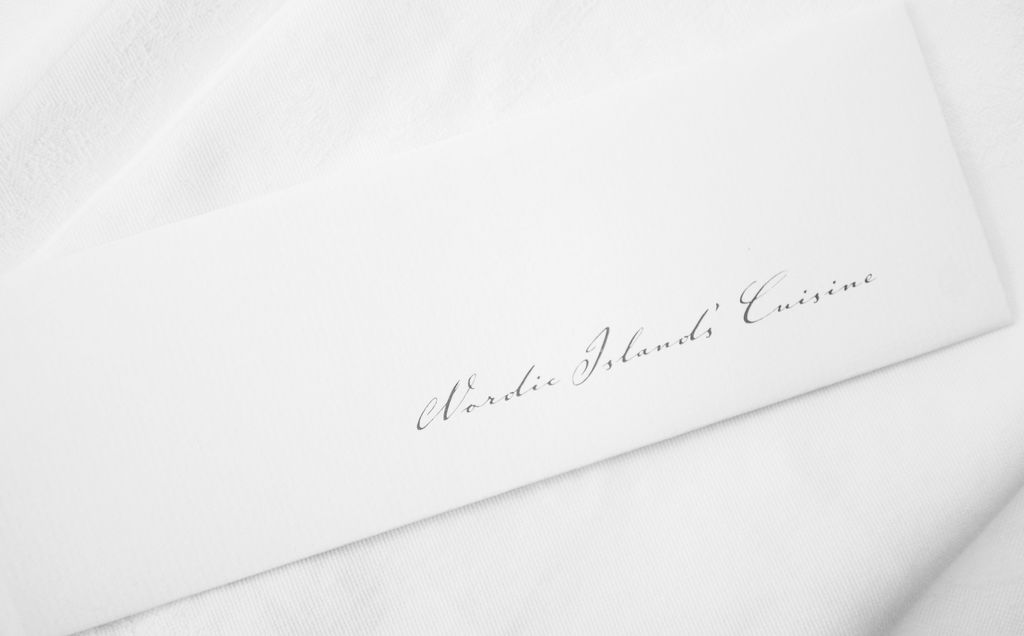 Nordic Islands' Cuisine